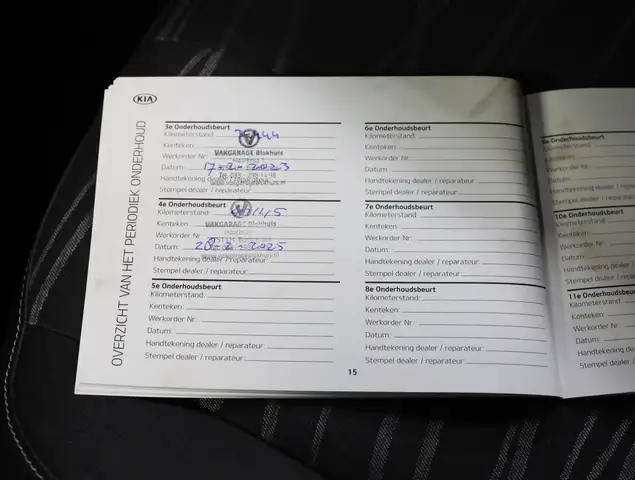 KIA
OVERZICHT VAN HET PERIODIEK ONDERHOUD
3e Onderhoudsbeurt
Kilometerstand
Kenteken:
Werkorder Nr:
VAKGARAGE Blokhuis
Datum: 17-2-2023
Handtekening dealer / reparateur:
Stempel dealer / reparateur:
4e Onderhoudsbeurt
Kilometerstand
Kenteken:
VAKGARAGE Blokhuis
Werkorder Nr:
Datum: 20-2-2025
Handtekening dealer / reparateur:
Stempel dealer / reparateur:
5e Onderhoudsbeurt
Kilometerstand:
Kenteken:
Werkorder Nr:
Datum:
Handtekening dealer / reparateur:
Stempel dealer / reparateur:
6e Onderhoudsbeurt
Kilometerstand:
Kenteken:
Werkorder Nr:
Datum:
Handtekening dealer / reparateur:
Stempel dealer / reparateur:
7e Onderhoudsbeurt
Kilometerstand
Kenteken:
Werkorder Nr:
Datum:
Handtekening dealer / reparateur:
Stempel dealer / reparateur:
8e Onderhoudsbeurt
Kilometerstand:
Kenteken:
Werkorder Nr:
Datum:
Handtekening dealer / reparateur:
Stempel dealer / reparateur:
15
9e Onderhoudsbeurt
Kilometerstand:
Kenteken:
Werkorder Nr:
Datum:
Handtekening dealer /
Stempel dealer / repara
10e Onderhoudsbeurt
Kilometerstand:
Kenteken:
Werkorder Nr:
Datum:
Handtekening dealer /
Stempel dealer / repar
11e Onderhoudsbeurt
Kilometerstand:
Kenteken:
Werkorder Nr
Datum:
Handtekening deale
Stempel dealer / rep